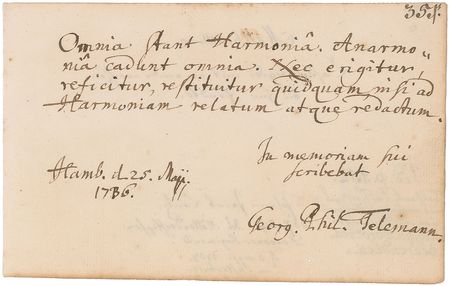 355.
Omnia stant Harmoniâ. Anarmo„
niâ cadunt omnia. Nec erigitur,
reficitur, restituitur quidquam nisi ad
Harmoniam relatum atque redactum.
In memoriam sui
scribebat
Hamb. d. 25. Maji
1736.
Georg. Phil. Telemann.